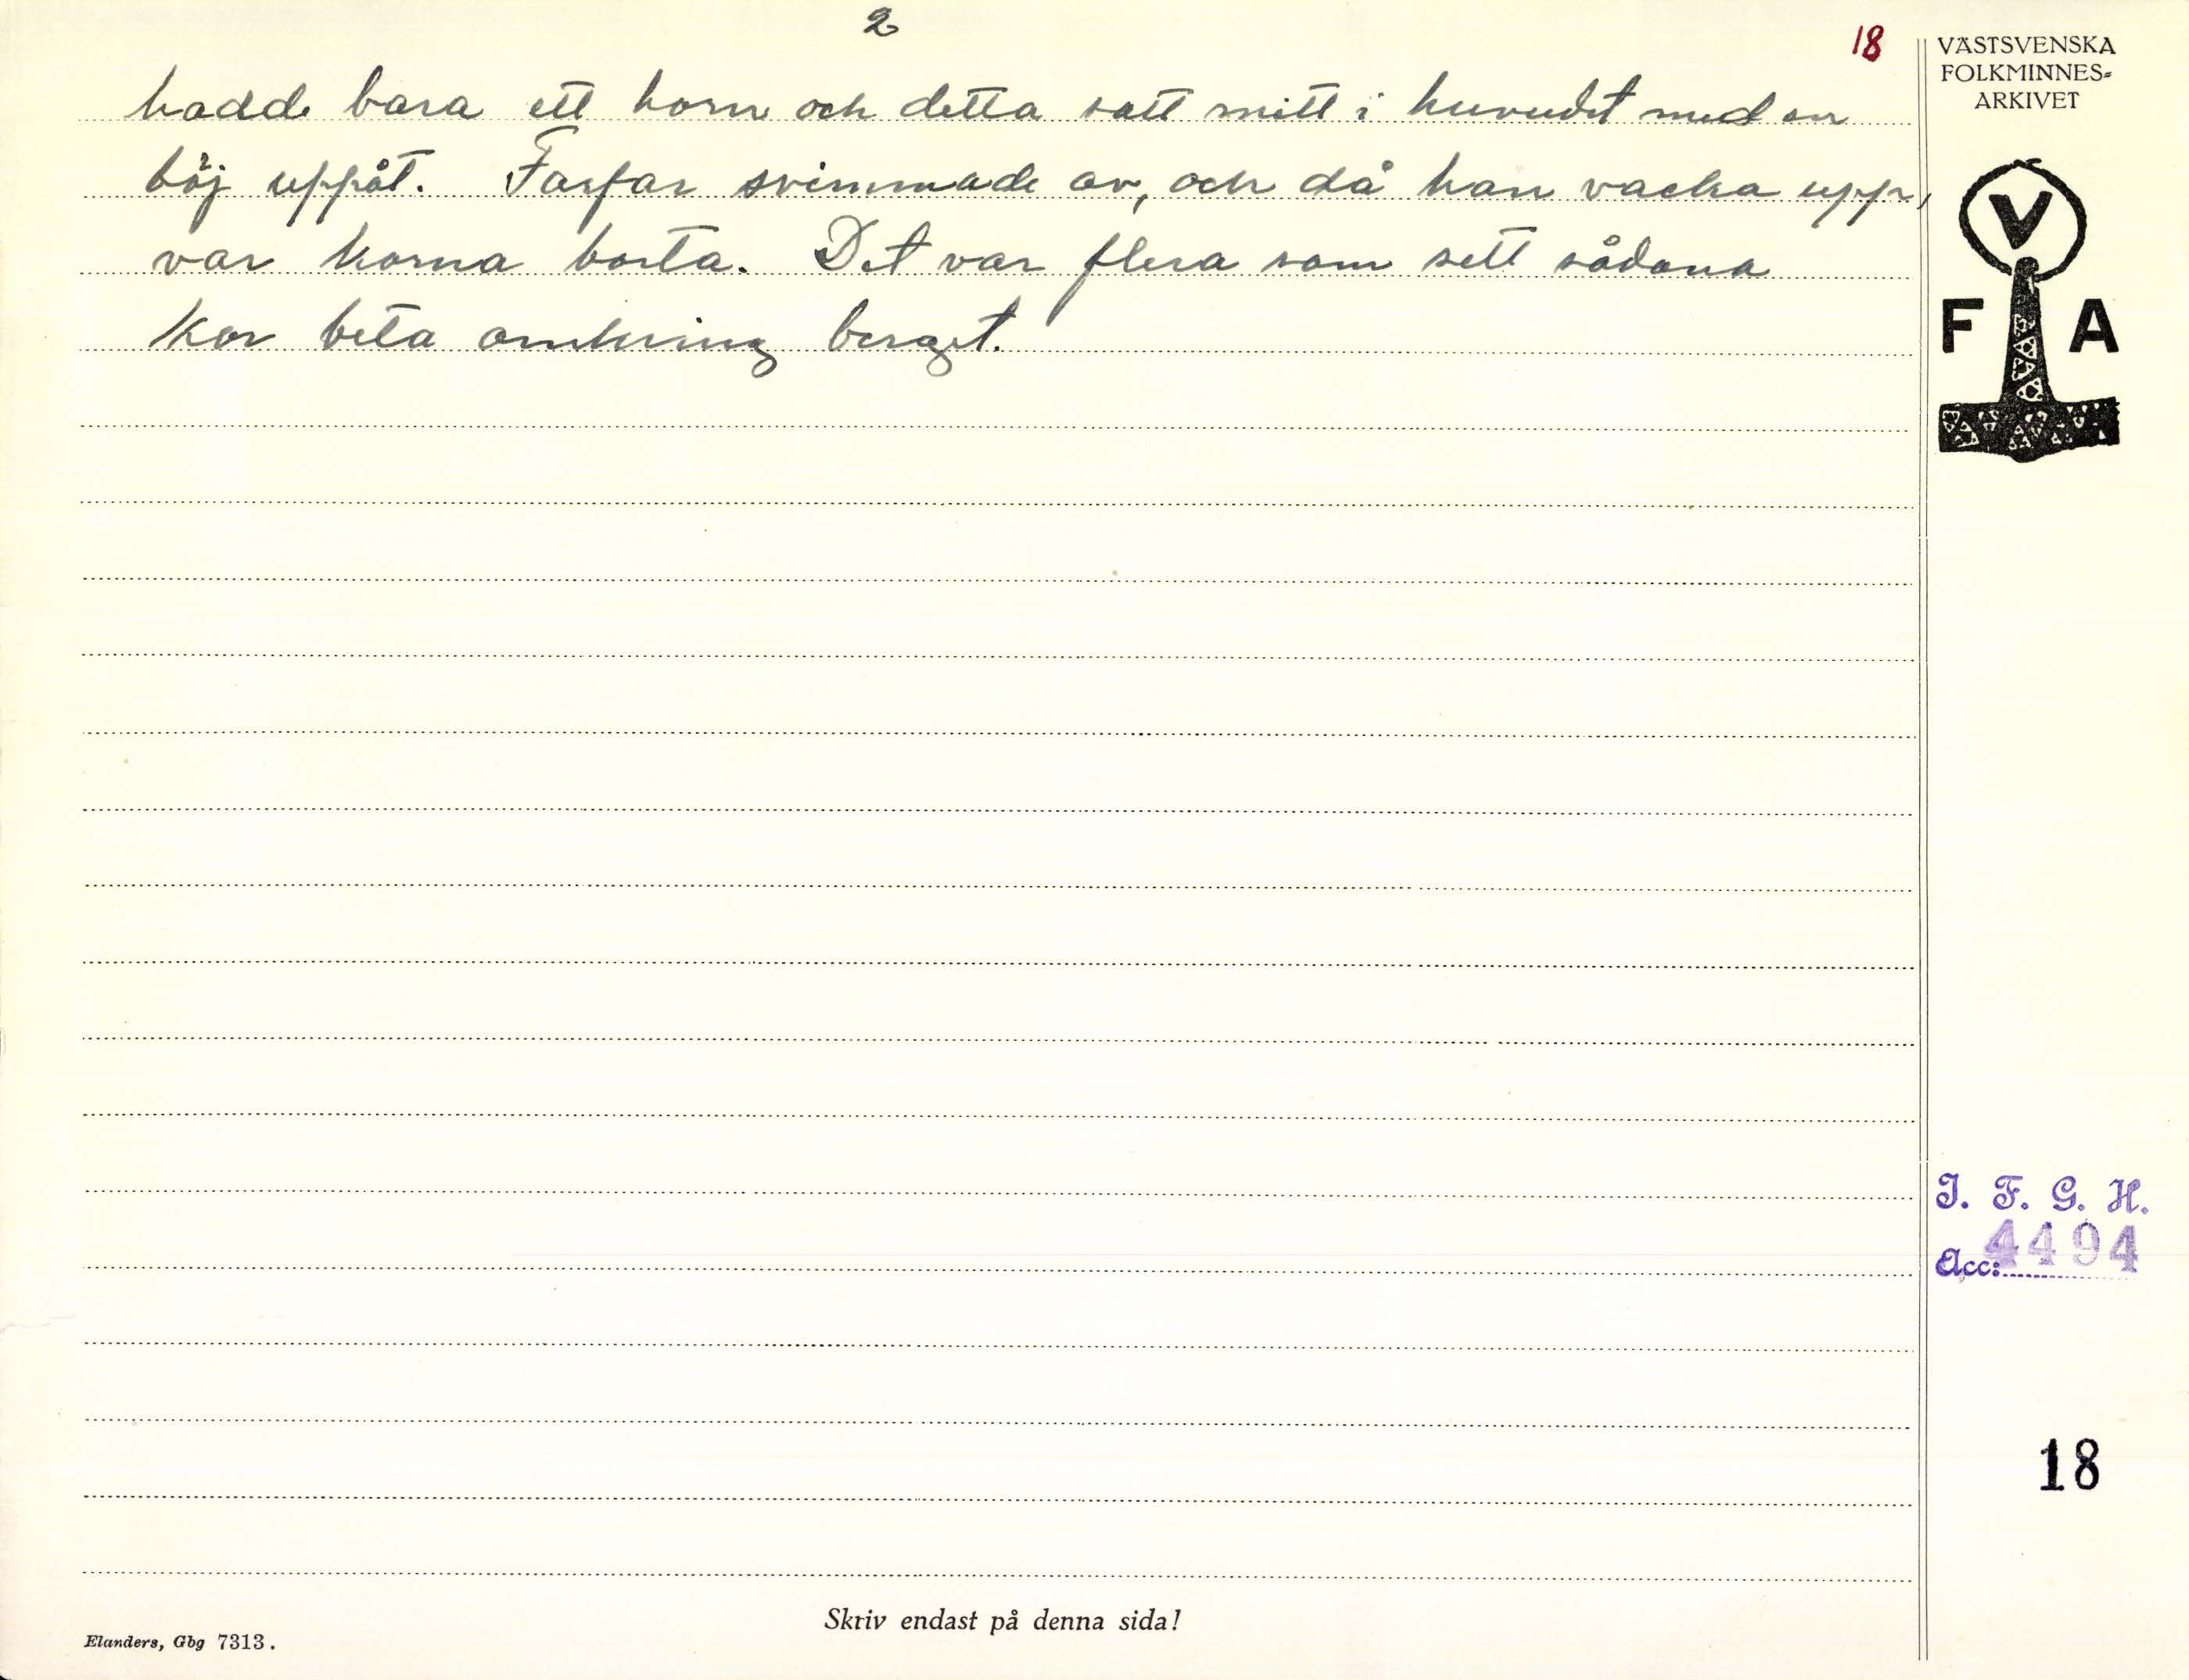 2
18
hadde bara ett horn och detta satt mitt i huvudet med en
böj uppåt. Farfar svimmade av, och då han vacka upp,
var korna borta. Det var flera som sett sådana
kor beta omkring berget.
VÄSTSVENSKA
FOLKMINNES-
ARKIVET
V
F A
I. F. G. H.
Acc: 4494
18
Skriv endast på denna sida!
Elanders, Gbg 7313.